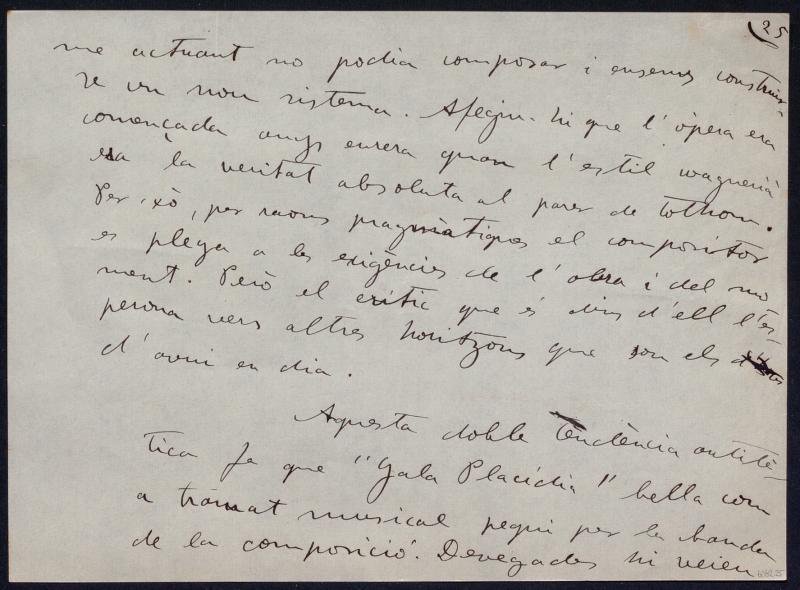 25
me actuant no podia composar i ensems construir-
se un nou sistema. Afegiu-hi que l'òpera era
començada anys enrera quan l'estil wagnerià
era la veritat absoluta al parer de tothom.
Per 'xò, per raons pragmàtiques el compositor
es plega a les exigències de l'obra i del mo
ment. Però el crític que és dins d'ell l'es-
perona vers altres horitzons que son els
d'avui en dia.
Aquesta doble tendència antitè-
tica fa que "Gala Placídia" bella com
a tramat musical pequi per la banda
de la composició. Devegades hi veieu